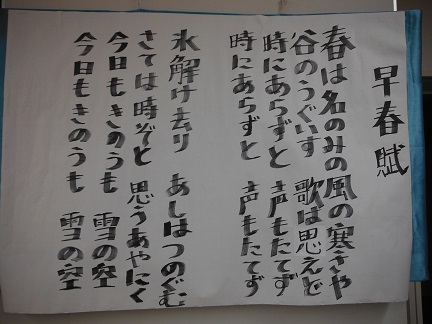 早春賦
春は名のみの風の寒さや
谷のうぐいす 歌は思えど
時にあらずと 声もたてず
時にあらずと 声もたてず
氷解け去り あしはつのぐむ
さては時ぞと 思うあやにく
今日もきのうも 雪の空
今日もきのうも 雪の空